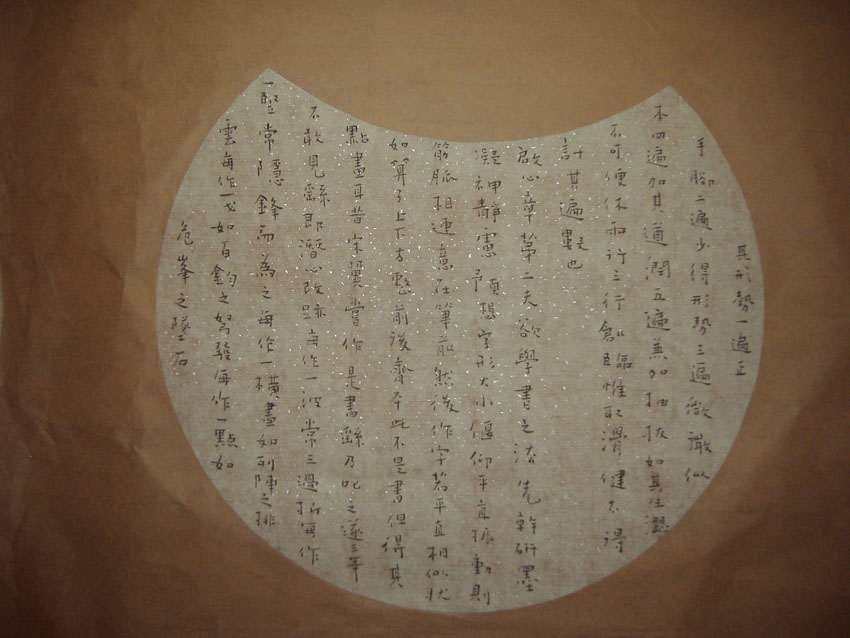 其形勢一遍正
手腳二遍少得形勢三遍微微似
本四遍加其遒潤五遍兼加抽拔如其生澀
不可便休兩行三行創臨惟取滑健不得
計其遍數也
啟心章第二夫欲學書之法先乾研墨
凝神靜慮預想字形大小偃仰平直振動則
筋脈相連意在筆前然後作字若平直相似狀
如算子上下方整前後齊平此不是書但得其
點畫耳昔宋翼嘗作是書繇乃叱之遂三年
不敢見繇即潛心改跡每作一波常三過折每作
一𠃊常隱鋒而為之每作一橫畫如列陣之排
雲每作一戈如百鈞之弩發每作一點如
危峯之墜石